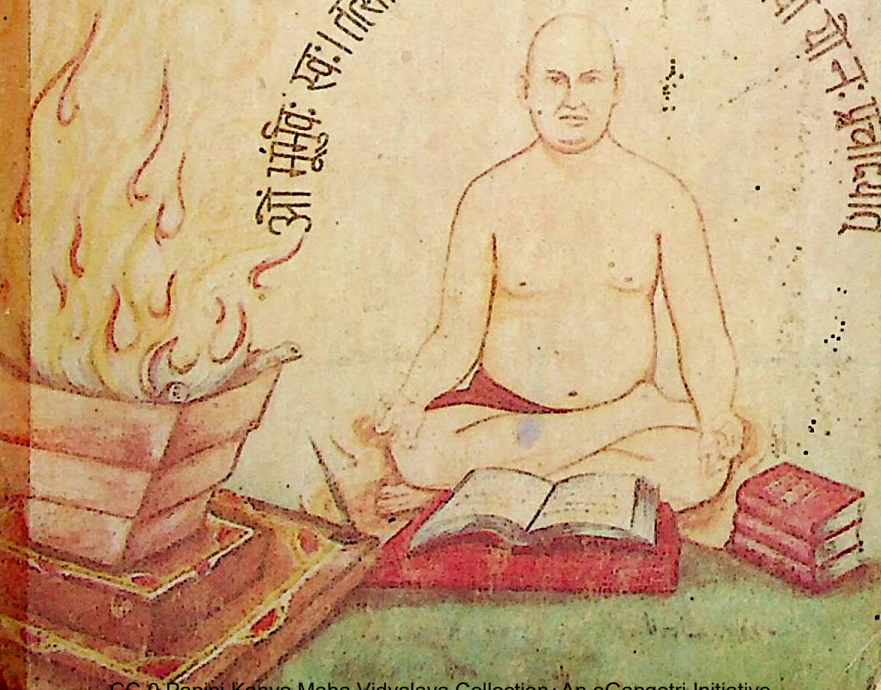 ओं भूर्भुवः स्वः। यो नः प्रचोदयात्
CC-0.Panini Kanya Maha Vidyalaya Collection. An eGangotri Initiative